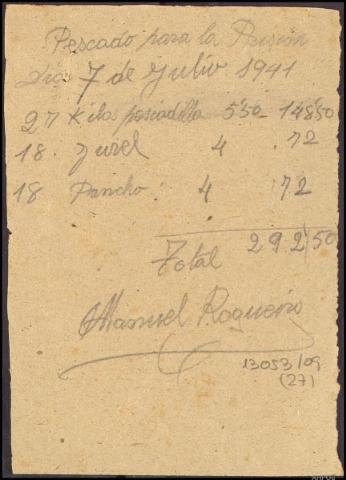 Pescado para la Prisión
Día 7 de Julio 1941
27 Kilos pasiadilla 5'50 148'50
18 Jurel 4 72
18 Pancho 4 72
292'50
Total
Manuel Rogueiro
13053/09
(27)